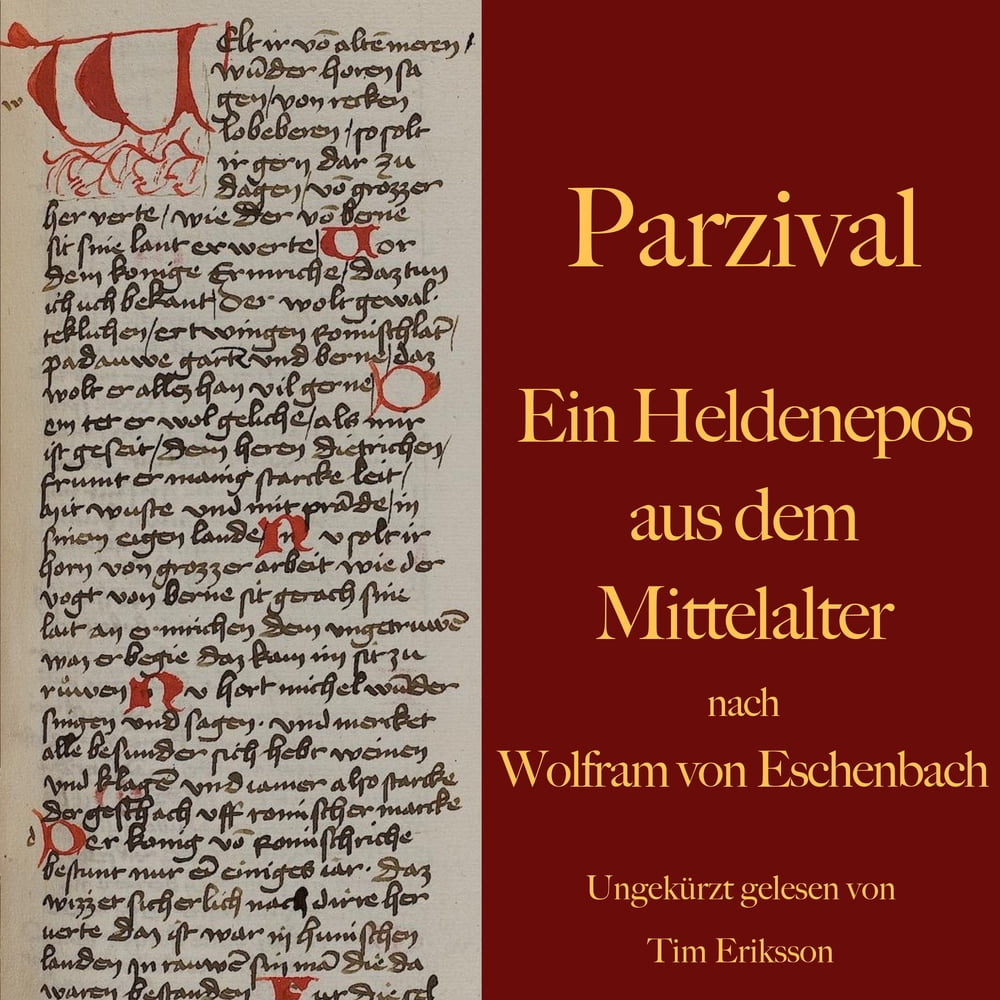 w
Welt ir vō altē meren /
wūder horen sa
gen / von recken
lobeberen / so solt
ir gern dar zu
dagen / vō grozzer
her verte / wie der vō berne
sit sine lant er werte / Vor
dem konige Ermriche / daz tun
ich uch bekant / der wolt gewal
teklichen / er twingen Romisch lāt /
padauwe gartē vnd berne / daz
wolt er allez han vil gerne / D
em tet er wol geliche / als mir
ist geseit / dem heren dietrichen /
frumt er manig starcke leit /
mit wuste vnd mit prāde / in
sinem eigen lande / N v solt ir
horn von grozzer arbeit wie der
vogt von berne sit gerach sine
lait an ermrichen dem vngetruwē
waz er begie daz kam im sit zu
růwen N v hort michel wūder
singen vnd sagen · vnd mercket
alle besunder sich hebt weinen
vnd klagē vnd iamer also starcke
der geschach vff romischer marcke
d Der konig vō Romischriche
bestunt nur ein einiges iar · daz
wizzet sicherlich nach dirre her
uerte daz ist war in hunischen
landen Jn rauwē sin mā die da
waren bestanden
Parzival
Ein Heldenepos
aus dem
Mittelalter
nach
Wolfram von Eschenbach
Ungekürzt gelesen von
Tim Eriksson